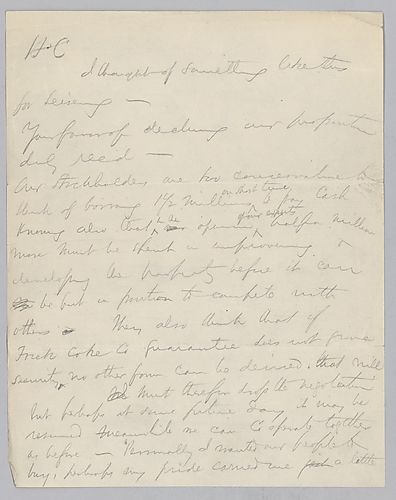 H C
I thought of something like this
for Leisering —
Your favor of declining our proposition
duly recd —
Our Stockholders are too conservative to
think of borrowing 1½ millions on short time to pay Cash
Knowing also that in opinion of our experts half a million
more must be spent in improving &
developing the property before it can
be put in position to compete with
others. They also think that if
Frick Coke Co guarantee does not prove
security, no other form can be devised that will
We must therefore drop the negotiation
but perhaps at some future day it may be
resumed Meanwhile we can Cooperate together
as before — Personally I wanted our people to
buy, perhaps my pride carried me a little